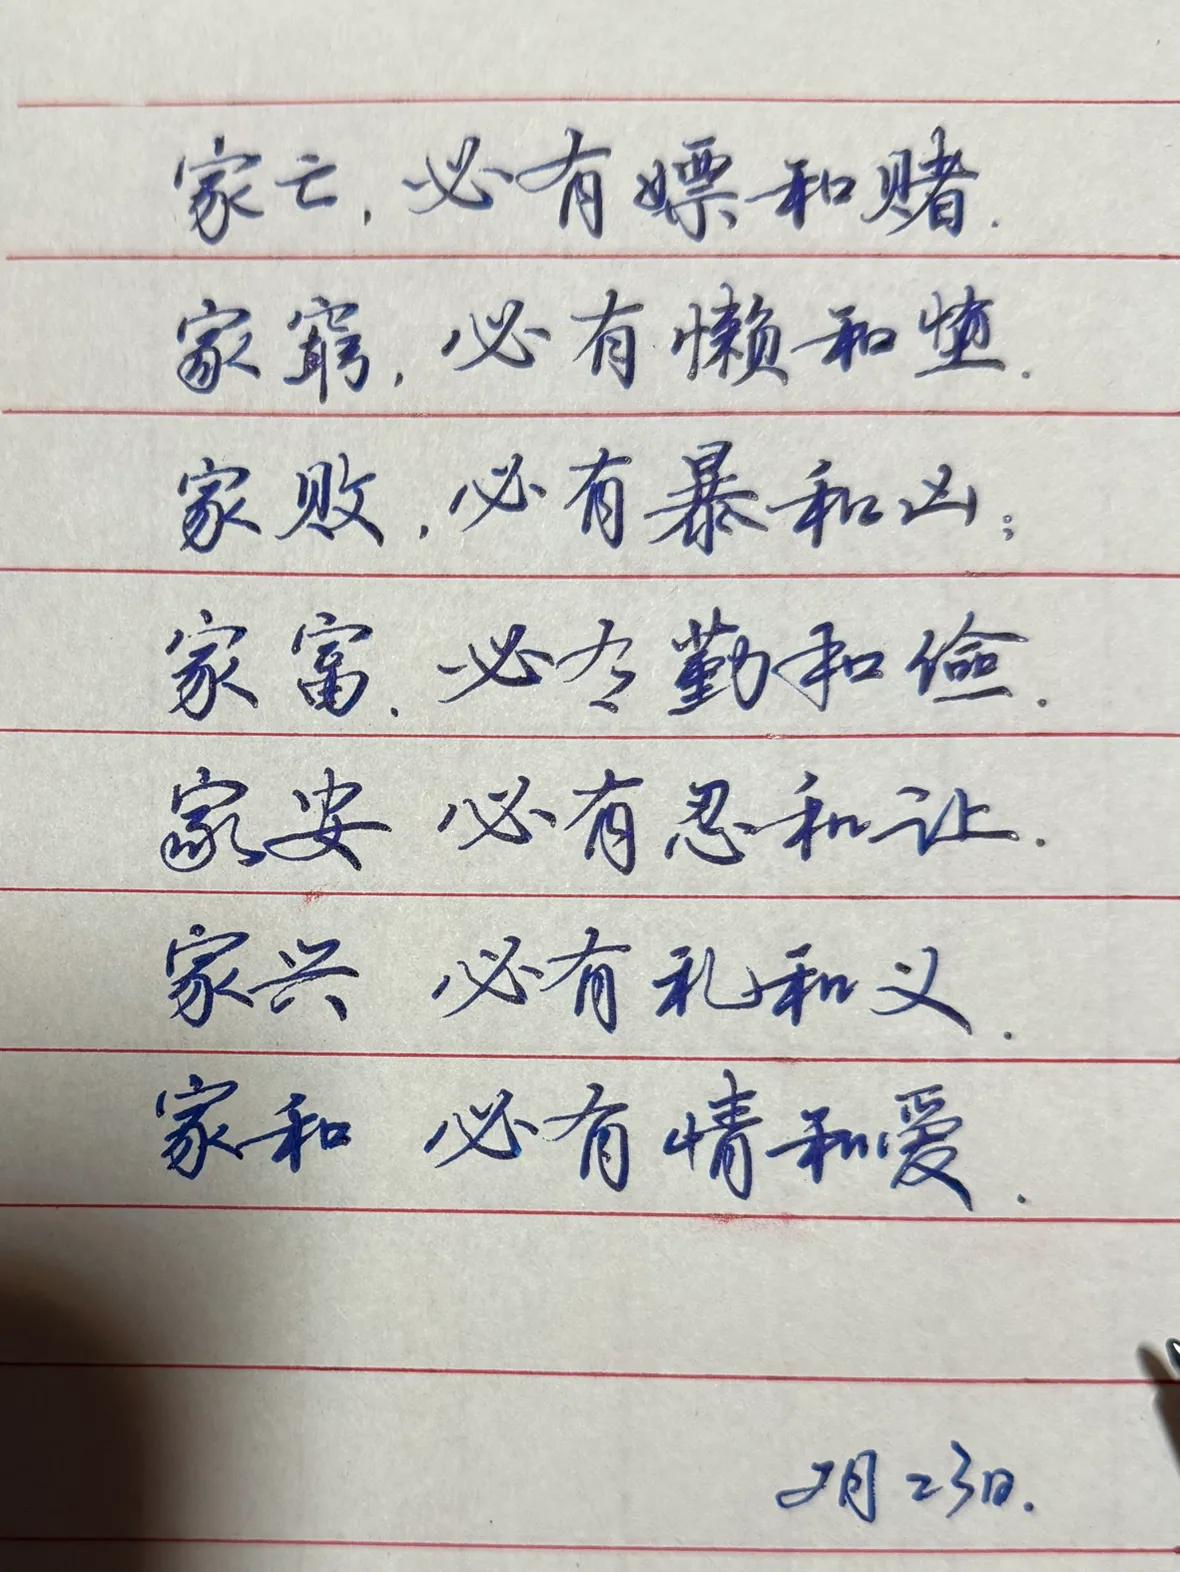 家亡,必有嫖和赌.
家穷,必有懒和惰.
家败,必有暴和凶;
家富,必有勤和俭.
家安 必有忍和让.
家兴 必有礼和义.
家和 必有情和爱.
2月23日.